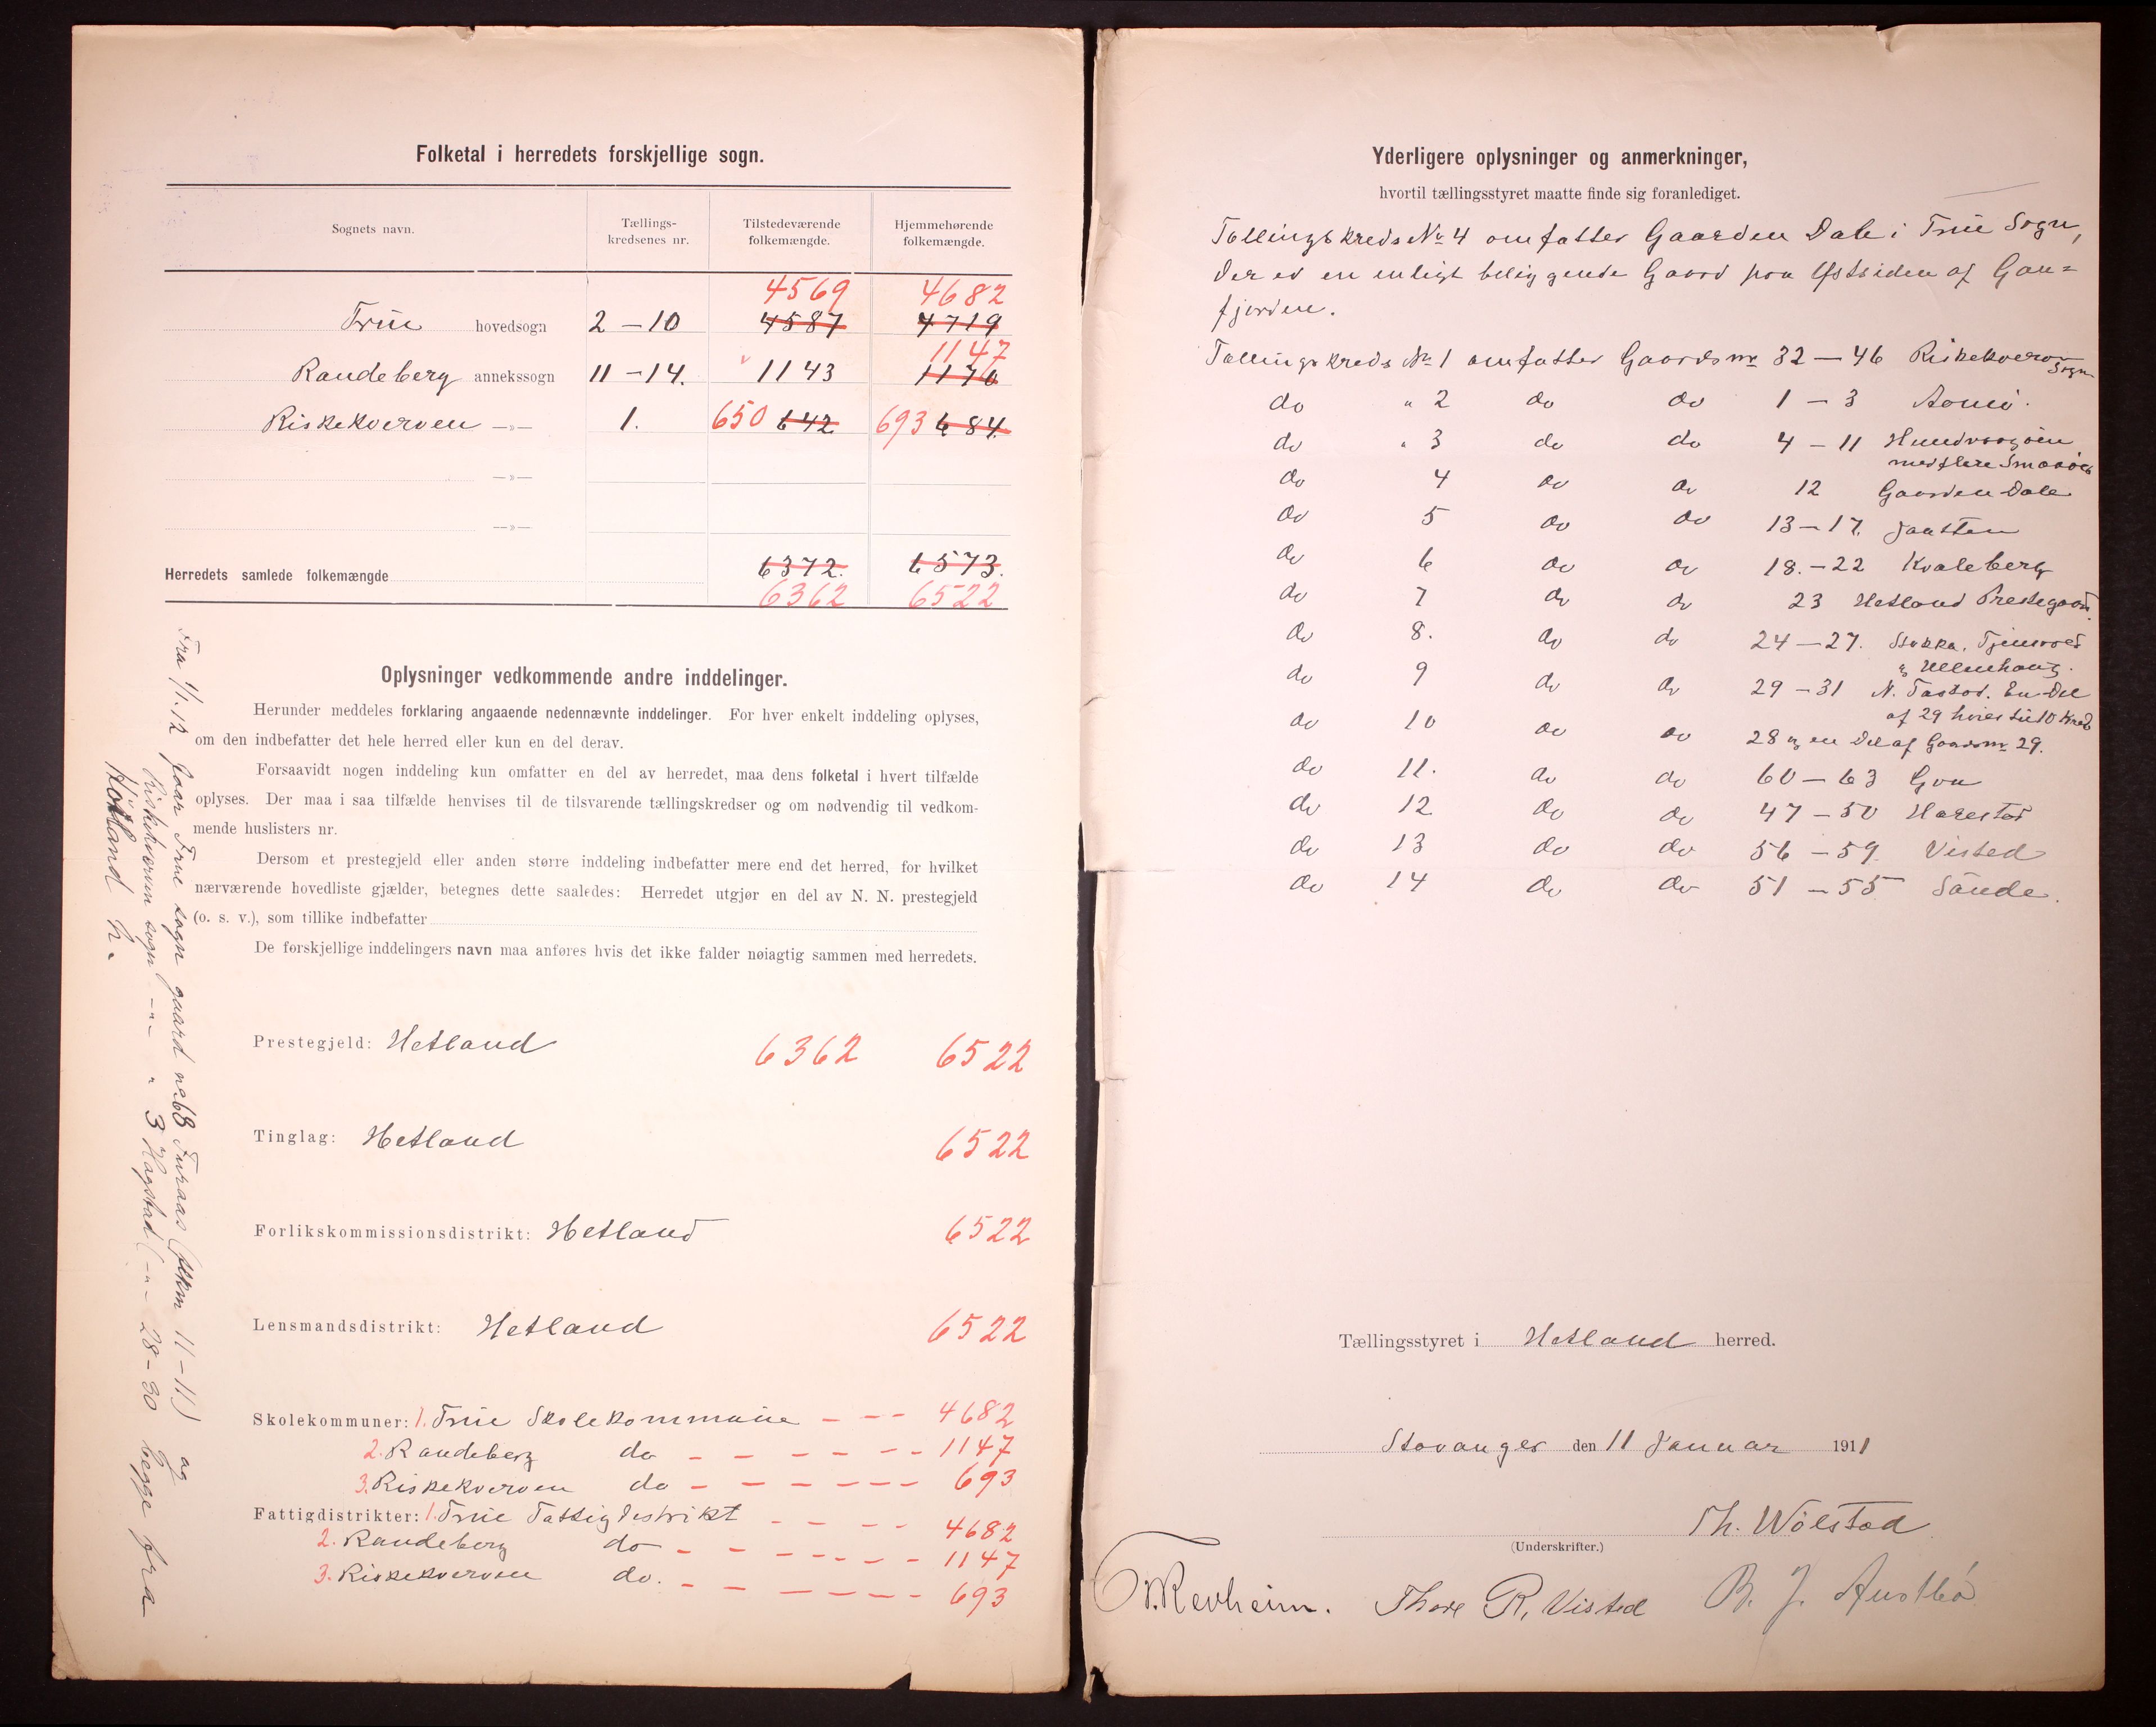 Folketal i herredets forskjellige sogn.
Sognets navn. Tællings-kredsenes nr. Tilstedeværende folkemængde. Hjemmehørende folkemængde.
4569 4682
Frue hovedsogn 2 – 10 4587 4719
1147
Randeberg annekssogn 11 – 14. 1143 1170
Riskekverven —»— 1. 650 642 693 684.
—»—
—»—
Herredets samlede folkemængde 6372. 6573.
6362 6522
Oplysninger vedkommende andre inddelinger.
Herunder meddeles forklaring angaaende nedennævnte inddelinger. For hver enkelt inddeling oplyses,
om den indbefatter det hele herred eller kun en del derav.
Forsaavidt nogen inddeling kun omfatter en del av herredet, maa dens folketal i hvert tilfælde
oplyses. Der maa i saa tilfælde henvises til de tilsvarende tællingskredser og om nødvendig til vedkom-
mende huslisters nr.
Dersom et prestegjeld eller anden større inddeling indbefatter mere end det herred, for hvilket
nærværende hovedliste gjælder, betegnes dette saaledes: Herredet utgjør en del av N. N. prestegjeld
(o. s. v.), som tillike indbefatter
De forskjellige inddelingers navn maa anføres hvis det ikke falder nøiagtig sammen med herredets.
Prestegjeld: Hetland 6362 6522
Tinglag: Hetland 6522
Forlikskommissionsdistrikt: Hetland 6522
Lensmandsdistrikt: Hetland 6522
Skolekommuner: 1. Frue Skolekommune – – – 4682
2. Randeberg do – – – – – – 1147
3. Riskekverven do – – – – – – 693
Fattigdistrikter: 1. Frue Fattigdistrikt – – – – 4682
2. Randeberg do – – – – – – – 1147
3. Riskekverven do. – – – – – – 693
Fra 1/1.12 faar Frue sogn gaard no 68 Furaas (fkm 11 – 11) og
Riskekverven sogn –"– " 3 Hagstad (–"– 28 – 30 begge fra
Höiland h.
Yderligere oplysninger og anmerkninger,
hvortil tællingsstyret maatte finde sig foranlediget.
Tællingskreds No 4 omfatter Gaarden Dale i Frue Sogn,
der er en enligt beliggende Gaard paa Østsiden af Gan=
fjorden.
Tællingskreds No 1 omfatter Gaardsnr 32 – 46 Riskekverven Sogn
do " 2 do do 1 – 3 Aamö.
do " 3 do do 4 – 11 Hundvaagöen
med flere Smaaöer
do 4 do do 12 Gaarden Dale
do 5 do do 13 – 17. Jaatten
do 6 do do 18. – 22 Kvaleberg
do 7 do do 23 Hetland Prestegaard.
do 8. do do 24 – 27. Stokka, Tjensvold
og Ullenhaug.
do 9 do do 29 – 31 N. Tastad. En Del
af 29 hører til 10 Kreds
do 10 do do 28 og en Del af Gaardsnr. 29.
do 11. do do 60 – 63 Gon
do 12 do do 47 – 50 Harestad
do 13 do do 56 – 59. Visted
do 14 do do 51 – 55 Sande.
Tællingsstyret i Hetland herred.
Stavanger den 11 Januar 1911
Th. Wölstad
(Underskrifter.)
Revheim. Thore R. Visted B. J. Austbö